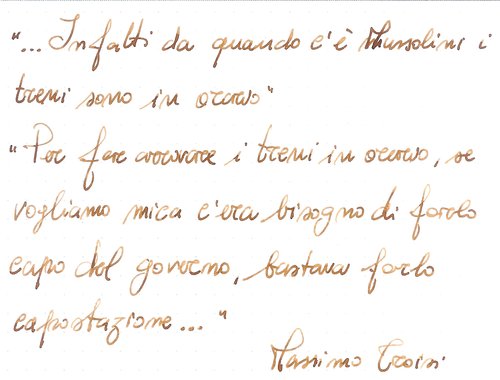 "... Infatti da quando c'è Mussolini i
treni sono in orario"
"Per fare arrivare i treni in orario, se
vogliamo mica c'era bisogno di farlo
capo del governo, bastava farlo
capostazione... "
Massimo Troisi